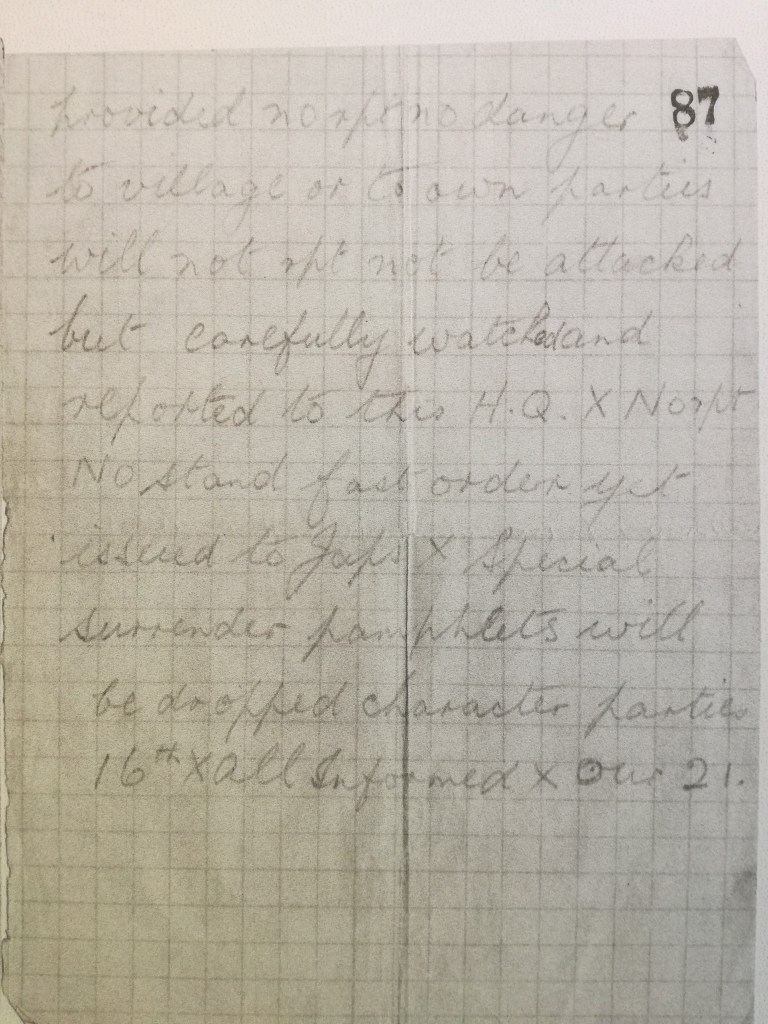 87
provided no rpt no danger
to village or to own parties
will not rpt not be attacked
but carefully watched and
reported to this H.Q. X No rpt
No stand fast order yet
issued to Japs X Special
surrender pamphlets will
be dropped character parties
16th X All Informed X Our 21.